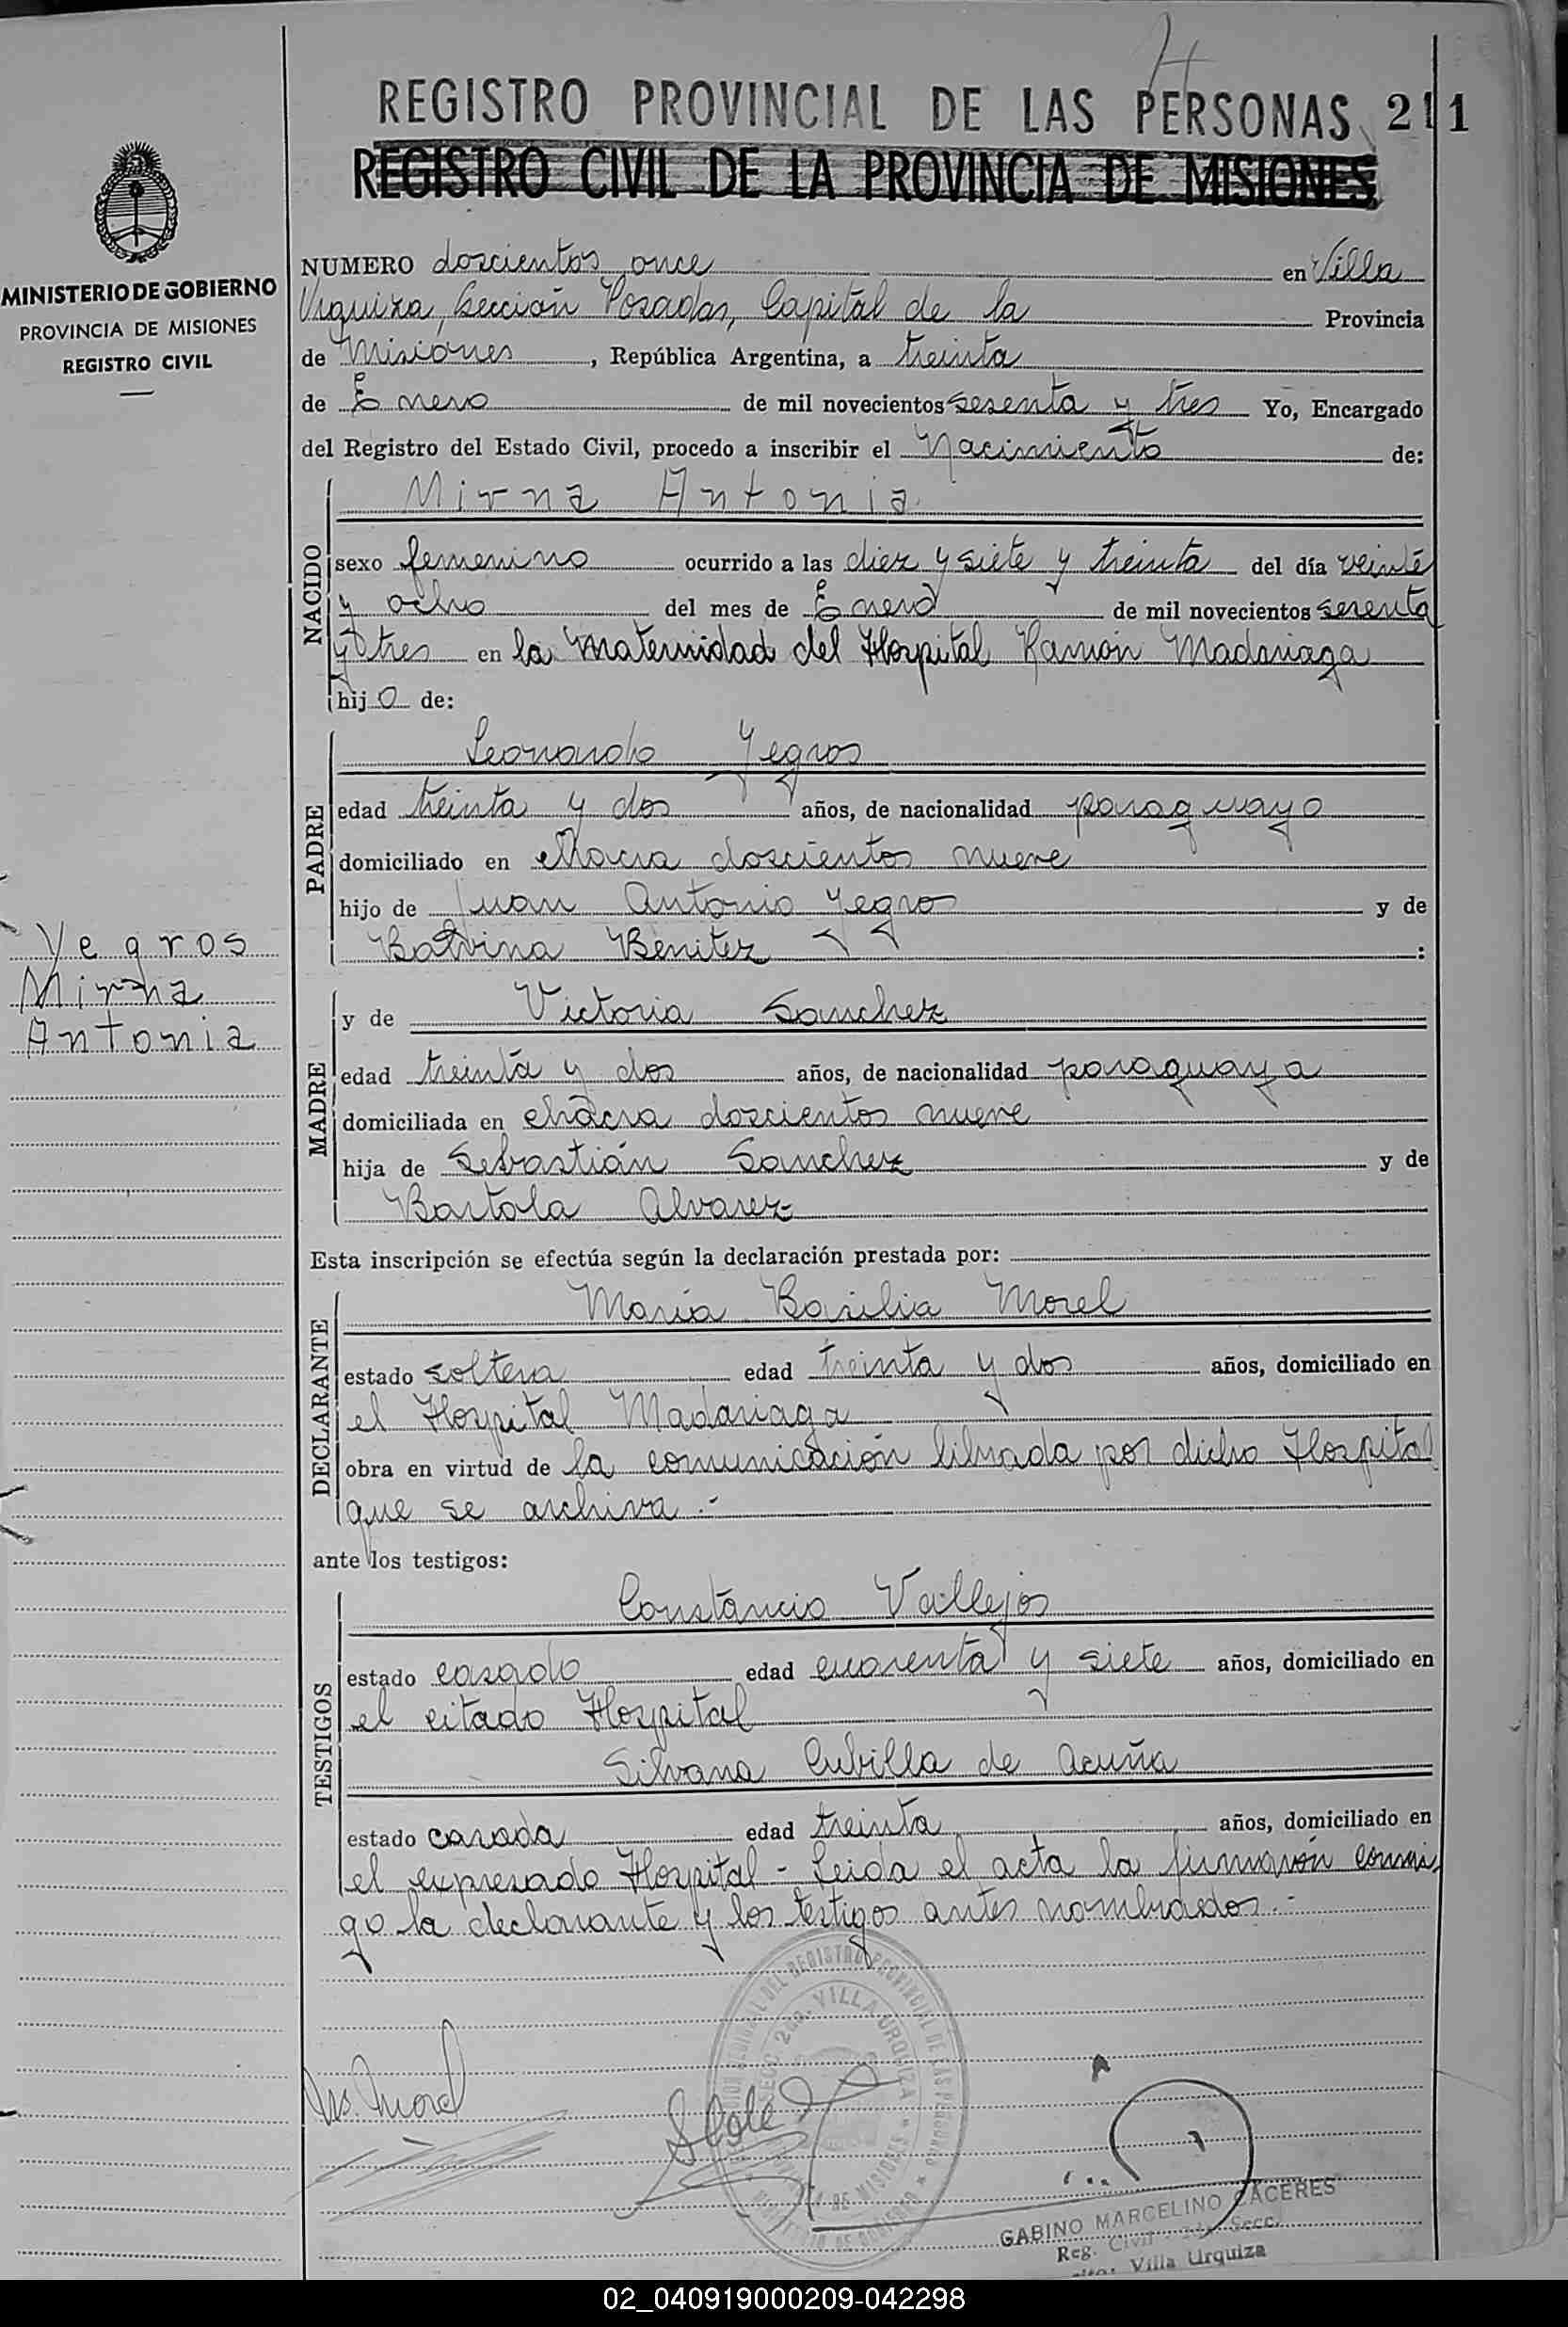 REGISTRO PROVINCIAL DE LAS PERSONAS 211
REGISTRO CIVIL DE LA PROVINCIA DE MISIONES
MINISTERIO DE GOBIERNO
PROVINCIA DE MISIONES
REGISTRO CIVIL
NUMERO doscientos once en Villa
Urquiza, Sección Posadas, Capital de la Provincia
de Misiones, República Argentina, a treinta
de Enero de mil novecientos sesenta y tres Yo, Encargado
del Registro del Estado Civil, procedo a inscribir el Nacimiento de:
NACIDO
Mirna Antonia
sexo femenino ocurrido a las diez y siete y treinta del día veinte
y ocho del mes de Enero de mil novecientos sesenta
y tres en la Maternidad del Hospital Ramón Madariaga
hijo de:
PADRE
Leonardo Yegros
edad treinta y dos años, de nacionalidad paraguayo
domiciliado en chacra doscientos nueve
hijo de Juan Antonio Yegros y de
Balvina Benitez :
Yegros
Mirna
Antonia
MADRE
y de Victoria Sanchez
edad treinta y dos años, de nacionalidad paraguaya
domiciliada en chacra doscientos nueve
hija de Sebastián Sanchez y de
Bartola Alvarez
Esta inscripción se efectúa según la declaración prestada por:
DECLARANTE
María Basilia Morel
estado soltera edad treinta y dos años, domiciliado en
el Hospital Madariaga
obra en virtud de la comunicación librada por dicho Hospital
que se archiva.-
ante los testigos:
TESTIGOS
Constancio Vallejos
estado casado edad cuarenta y siete años, domiciliado en
el citado Hospital
Silvana Cubilla de Acuña
estado casada edad treinta años, domiciliado en
el expresado Hospital - Leida el acta la firmarón conmi
go la declarante y los testigos antes nombrados.-
Morel
VILLA URQUIZA
GABINO MARCELINO CACERES
Reg. Civil Secc.
Villa Urquiza
02_040919000209-042298